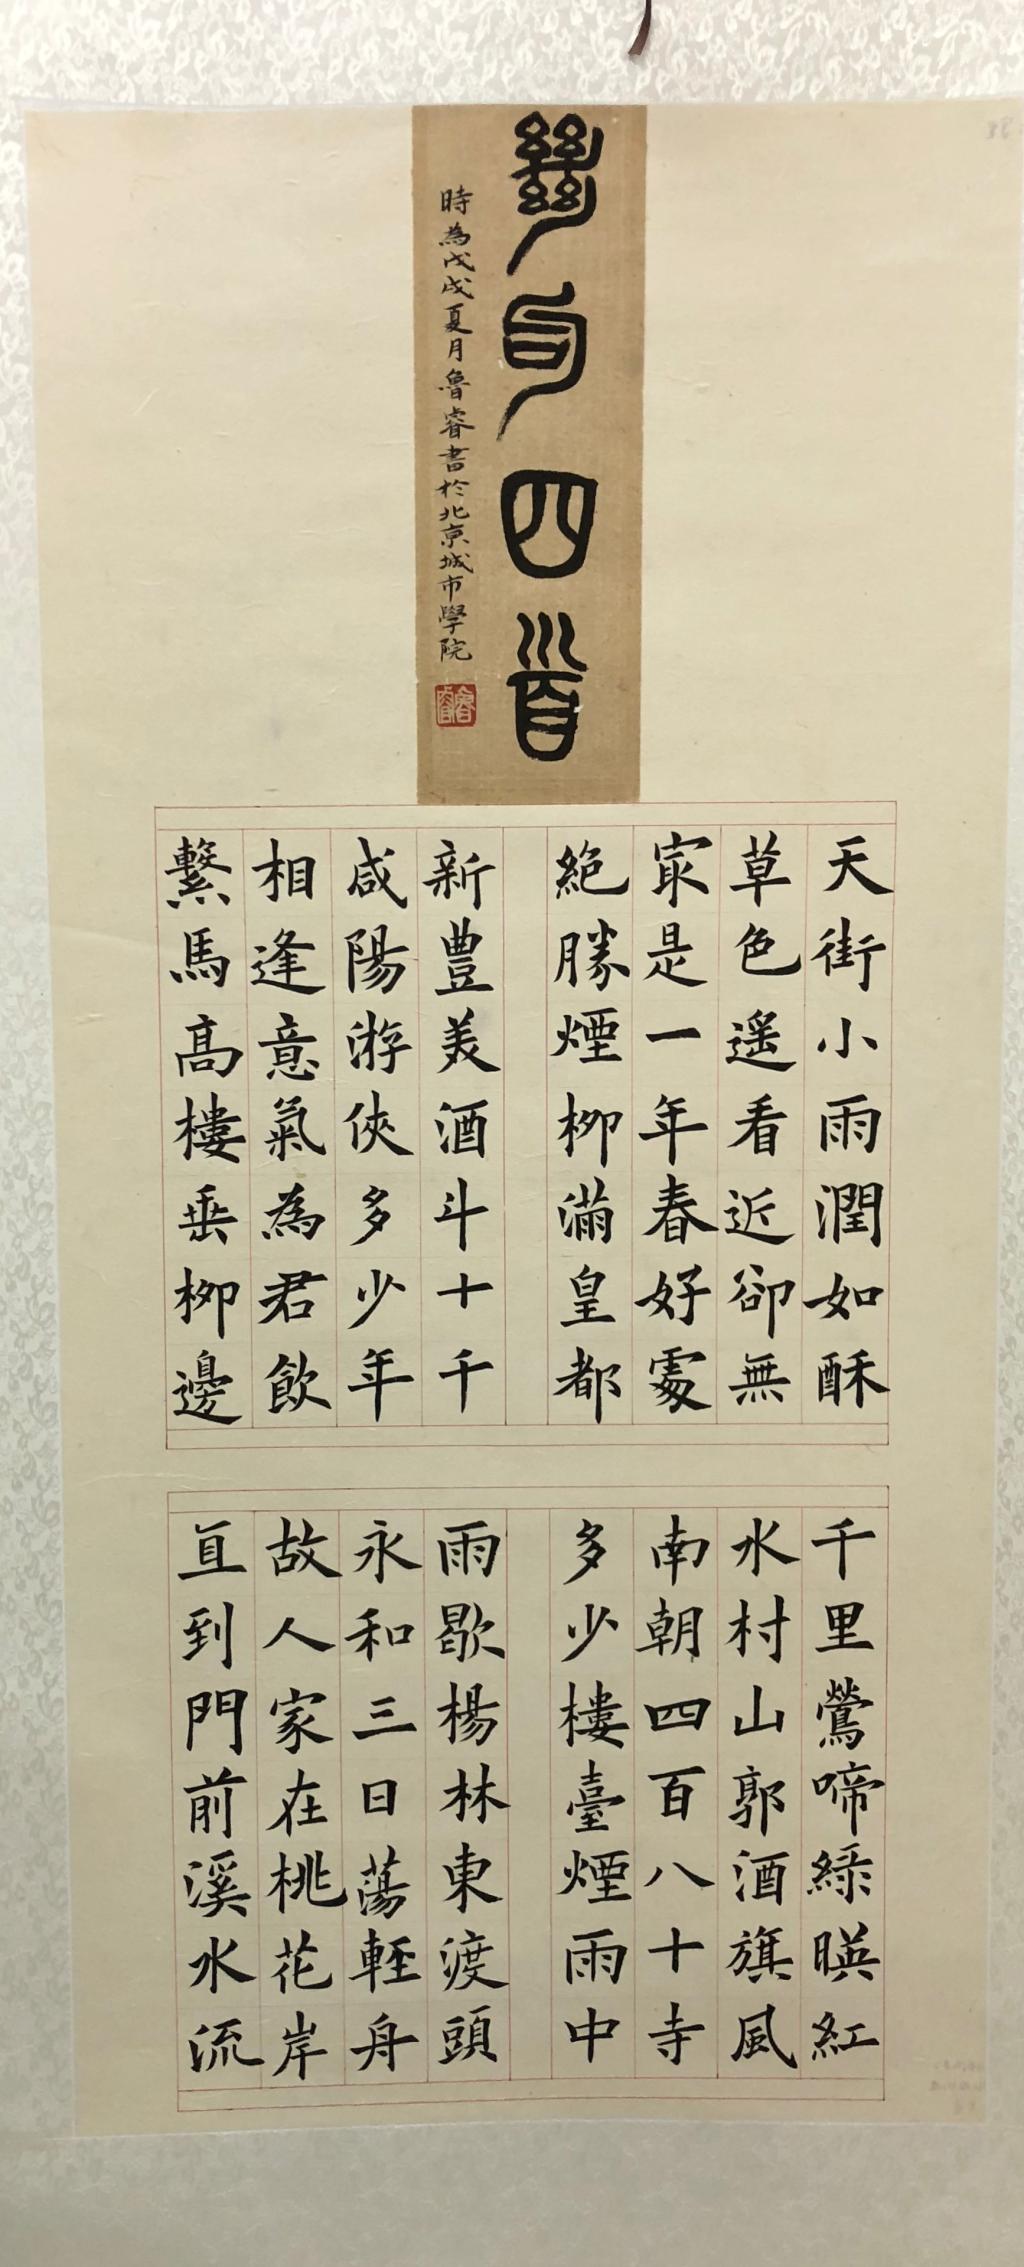 絕句四首
時為戊戌夏月魯睿書於北京城市學院
魯睿
天街小雨潤如酥
草色遥看近卻無
冣是一年春好處
絶勝煙柳滿皇都
新豊美酒斗十千
咸陽游俠多少年
相逢意氣為君飲
繫馬高樓垂柳邊
千里鶯啼綠暎紅
水村山郭酒旗風
南朝四百八十寺
多少樓臺煙雨中
雨歇楊林東渡頭
永和三日蕩輕舟
故人家在桃花岸
直到門前溪水流